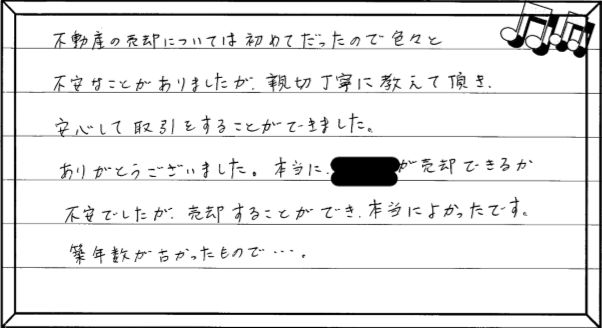 不動産の売却については初めてだったので色々と
不安なことがありましたが、親切丁寧に教えて頂き、
安心して取引をすることができました。
ありがとうございました。本当に、が売却できるか
不安でしたが、売却することができ、本当によかったです。
築年数が古かったもので…。